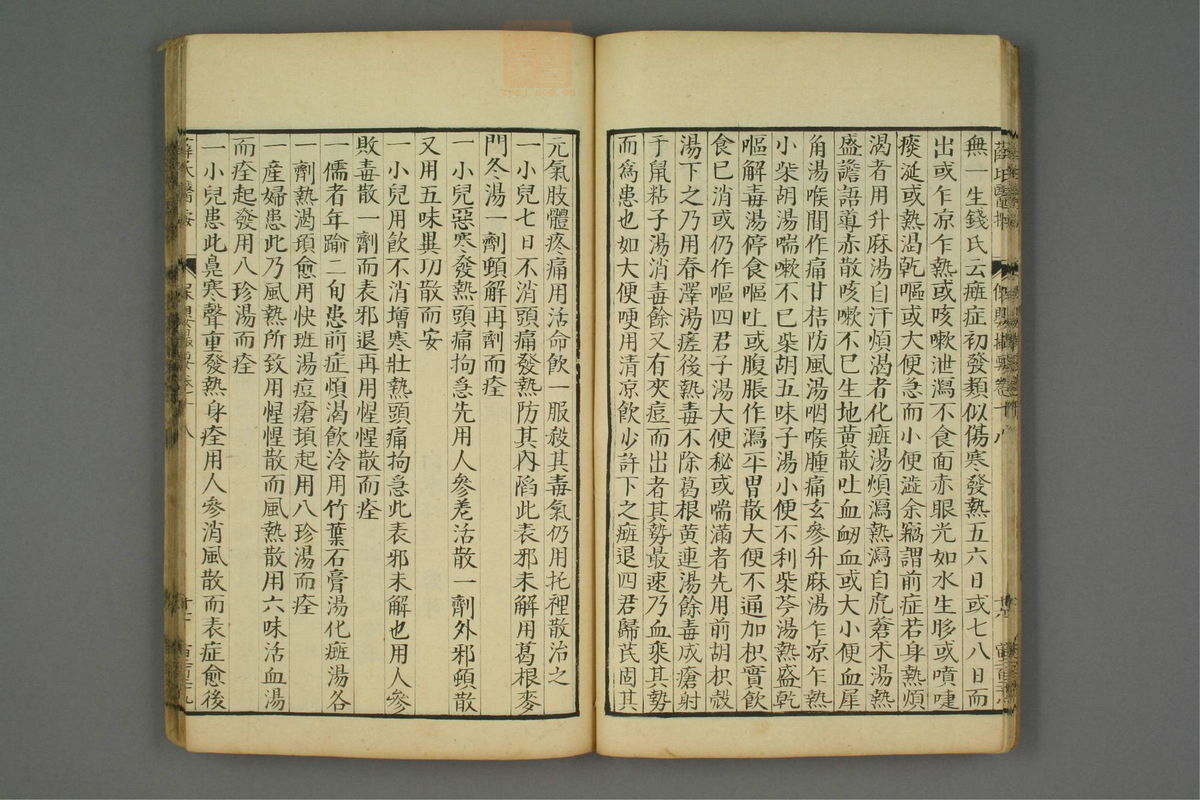 無一生錢氏云癍症初發類似傷寒發熱五六日或七八日而
出或乍凉乍熱或咳嗽泄瀉不食面赤眼光如水生眵或噴嚏
痰涎或熱渴乾嘔或大便急而小便澁余竊謂前症若身熱煩
渴者用升麻湯自汗煩渴者化癍湯煩瀉熱瀉自虎蒼术湯熱
盛譫語導赤散咳嗽不已生地黃散吐血衂血或大小便血犀
角湯喉間作痛甘桔防風湯咽喉腫痛玄參升麻湯乍凉乍熱
小柴胡湯喘嗽不已柴胡五味子湯小便不利柴苓湯熱盛乾
嘔解毒湯停食嘔吐或腹脹作瀉平胃散大便不通加枳實飲
食巳消或仍作嘔四君子湯大便秘或喘滿者先用前胡枳殼
湯下之乃用春澤湯瘥後熱毒不除葛根黄連湯餘毒成瘡射
于鼠粘子湯消毒餘又有夾痘而出者其勢最速乃血乘其勢
而爲患也如大便哽用清凉飲少許下之癍退四君歸芪固其
元氣肢體疼痛用活命飲一服殺其毒氣仍用托裡散治之
一小兒七日不消頭痛發熱防其內陷此表邪未解用葛根麥
門冬湯一劑頓解再劑而痊
一小兒惡寒發熱頭痛拘急先用人參羌活散一劑外邪頓散
又用五味異功散而安
一小兒用飲不消增寒壯熱頭痛拘急此表邪未解也用人參
敗毒散一劑而表邪退再用惺惺散而痊
一儒者年踰二旬患前症煩渴飲冷用竹葉石膏湯化癍湯各
一劑熱渴頊愈用快班湯痘瘡頊起用八珍湯而痊
一産婦患此乃風熱所致用惺惺散而風熱散用六味活血湯
而痊起發用八珍湯而痊
一小兒患此鼻寒聲重發熱身痊用人參消風散而表症愈後